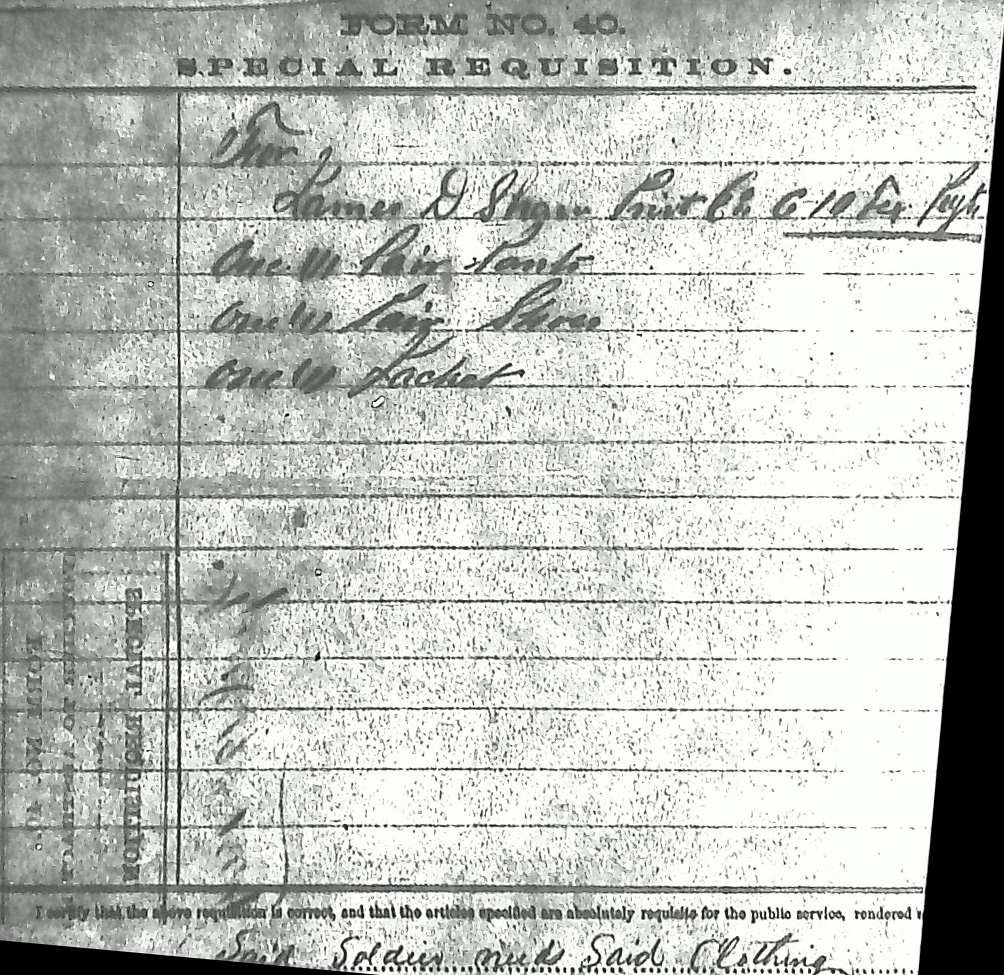 FORM NO. 40.
SPECIAL REQUISITION.
For
James D Shaw Privt Co G 10 Tex Regt
One (1) Pair Pants
One (1) Pair Shoes
One (1) Jacket
SPECIAL REQUISITION
FORM NO. 40.
I certify that the above requisition is correct, and that the articles specified are absolutely requisite for the public service, rendered
Said Soldier needs Said Clothing